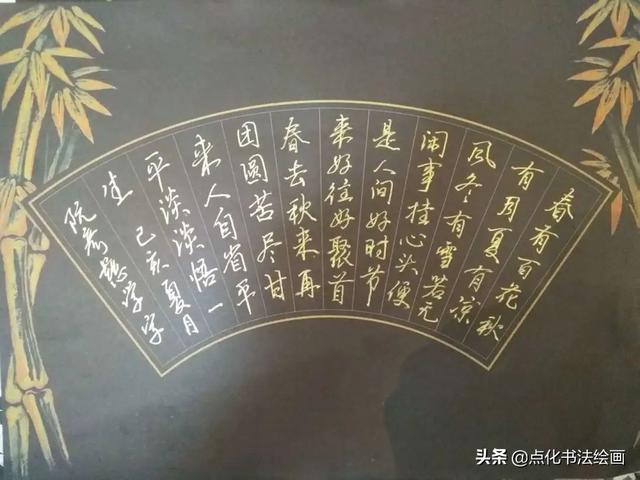 春有百花秋
有月夏有凉
风冬有雪若无
闲事挂心头便
是人间好时节
来好往好聚首
春去秋来再
团圆苦尽甘
来人自省平
平淡淡悟一
生
己亥夏月
学字
头条 @点化书法绘画